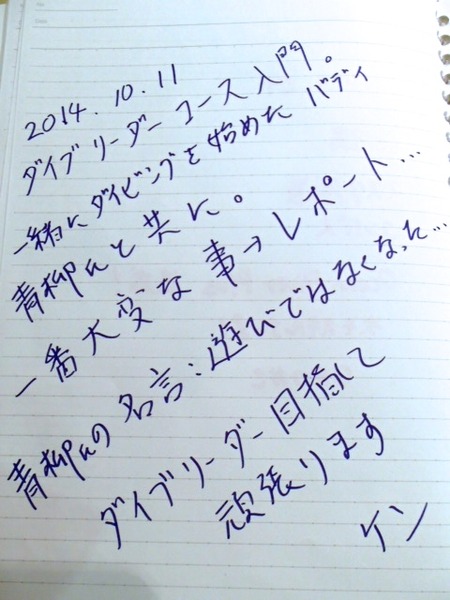 2014.10.11
ダイブリーダーコース入門。
一緒にダイビングを始めたバディ
青柳さんと共に。
一番大変な事→レポート…
青柳さんの名言:遊びではなくなった…
ダイブリーダー目指して
頑張ります
ケン